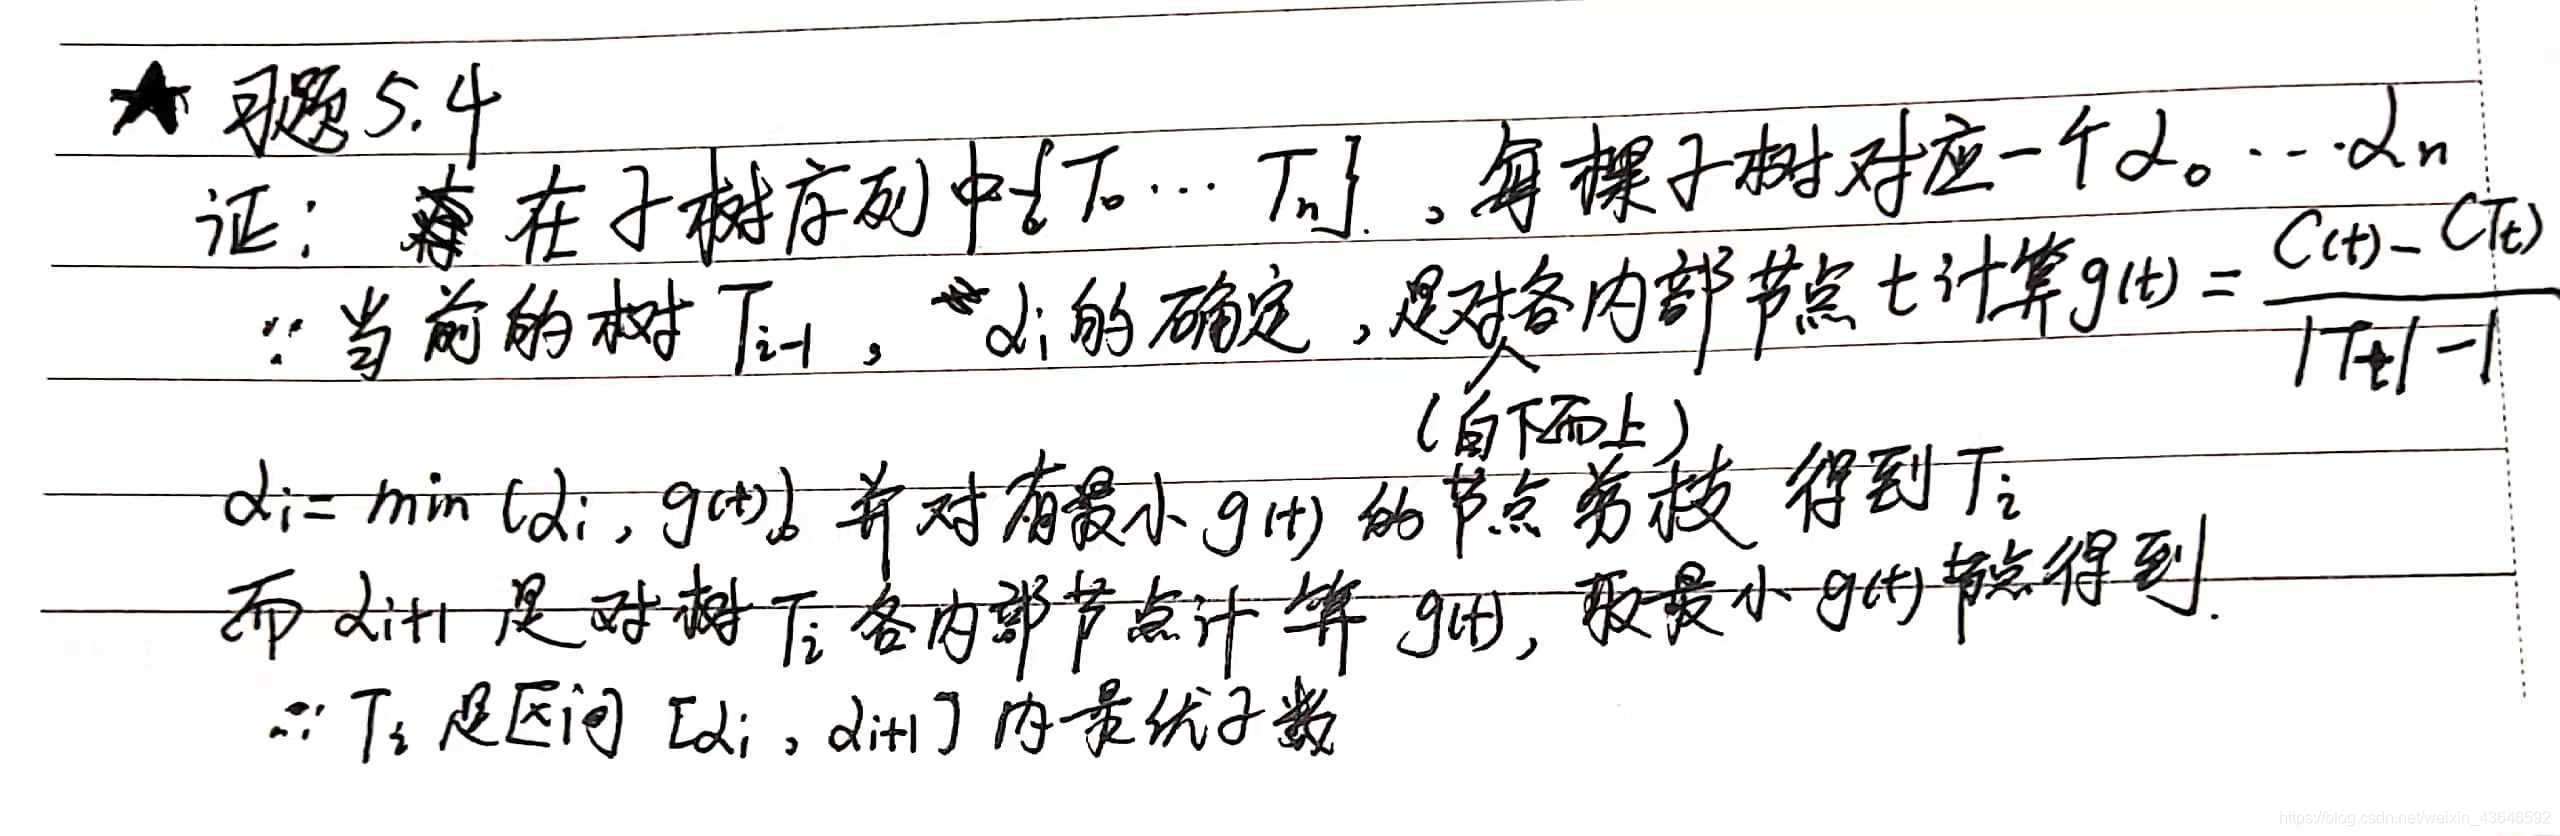 ★ 习题5.4
证: 在子树序列中{T₀ … Tₙ}. , 每棵子树对应一个α₀ … αₙ
∵ 当前的树 Tᵢ₋₁ , αᵢ的确定 , 是对各内部节点 t 计算 g(t) = (C(t) - C(Tₜ)) / (|Tₜ| - 1)
(自下而上)
αᵢ = min (αᵢ , g(t)). 并对有最小 g(t) 的节点剪枝 得到 Tᵢ
而 αᵢ₊₁ 是对树 Tᵢ 各内部节点计算 g(t), 取最小 g(t) 节点得到.
∴ Tᵢ 是区间 [αᵢ , αᵢ₊₁] 内最优子数
https://blog.csdn.net/weixin_43646592